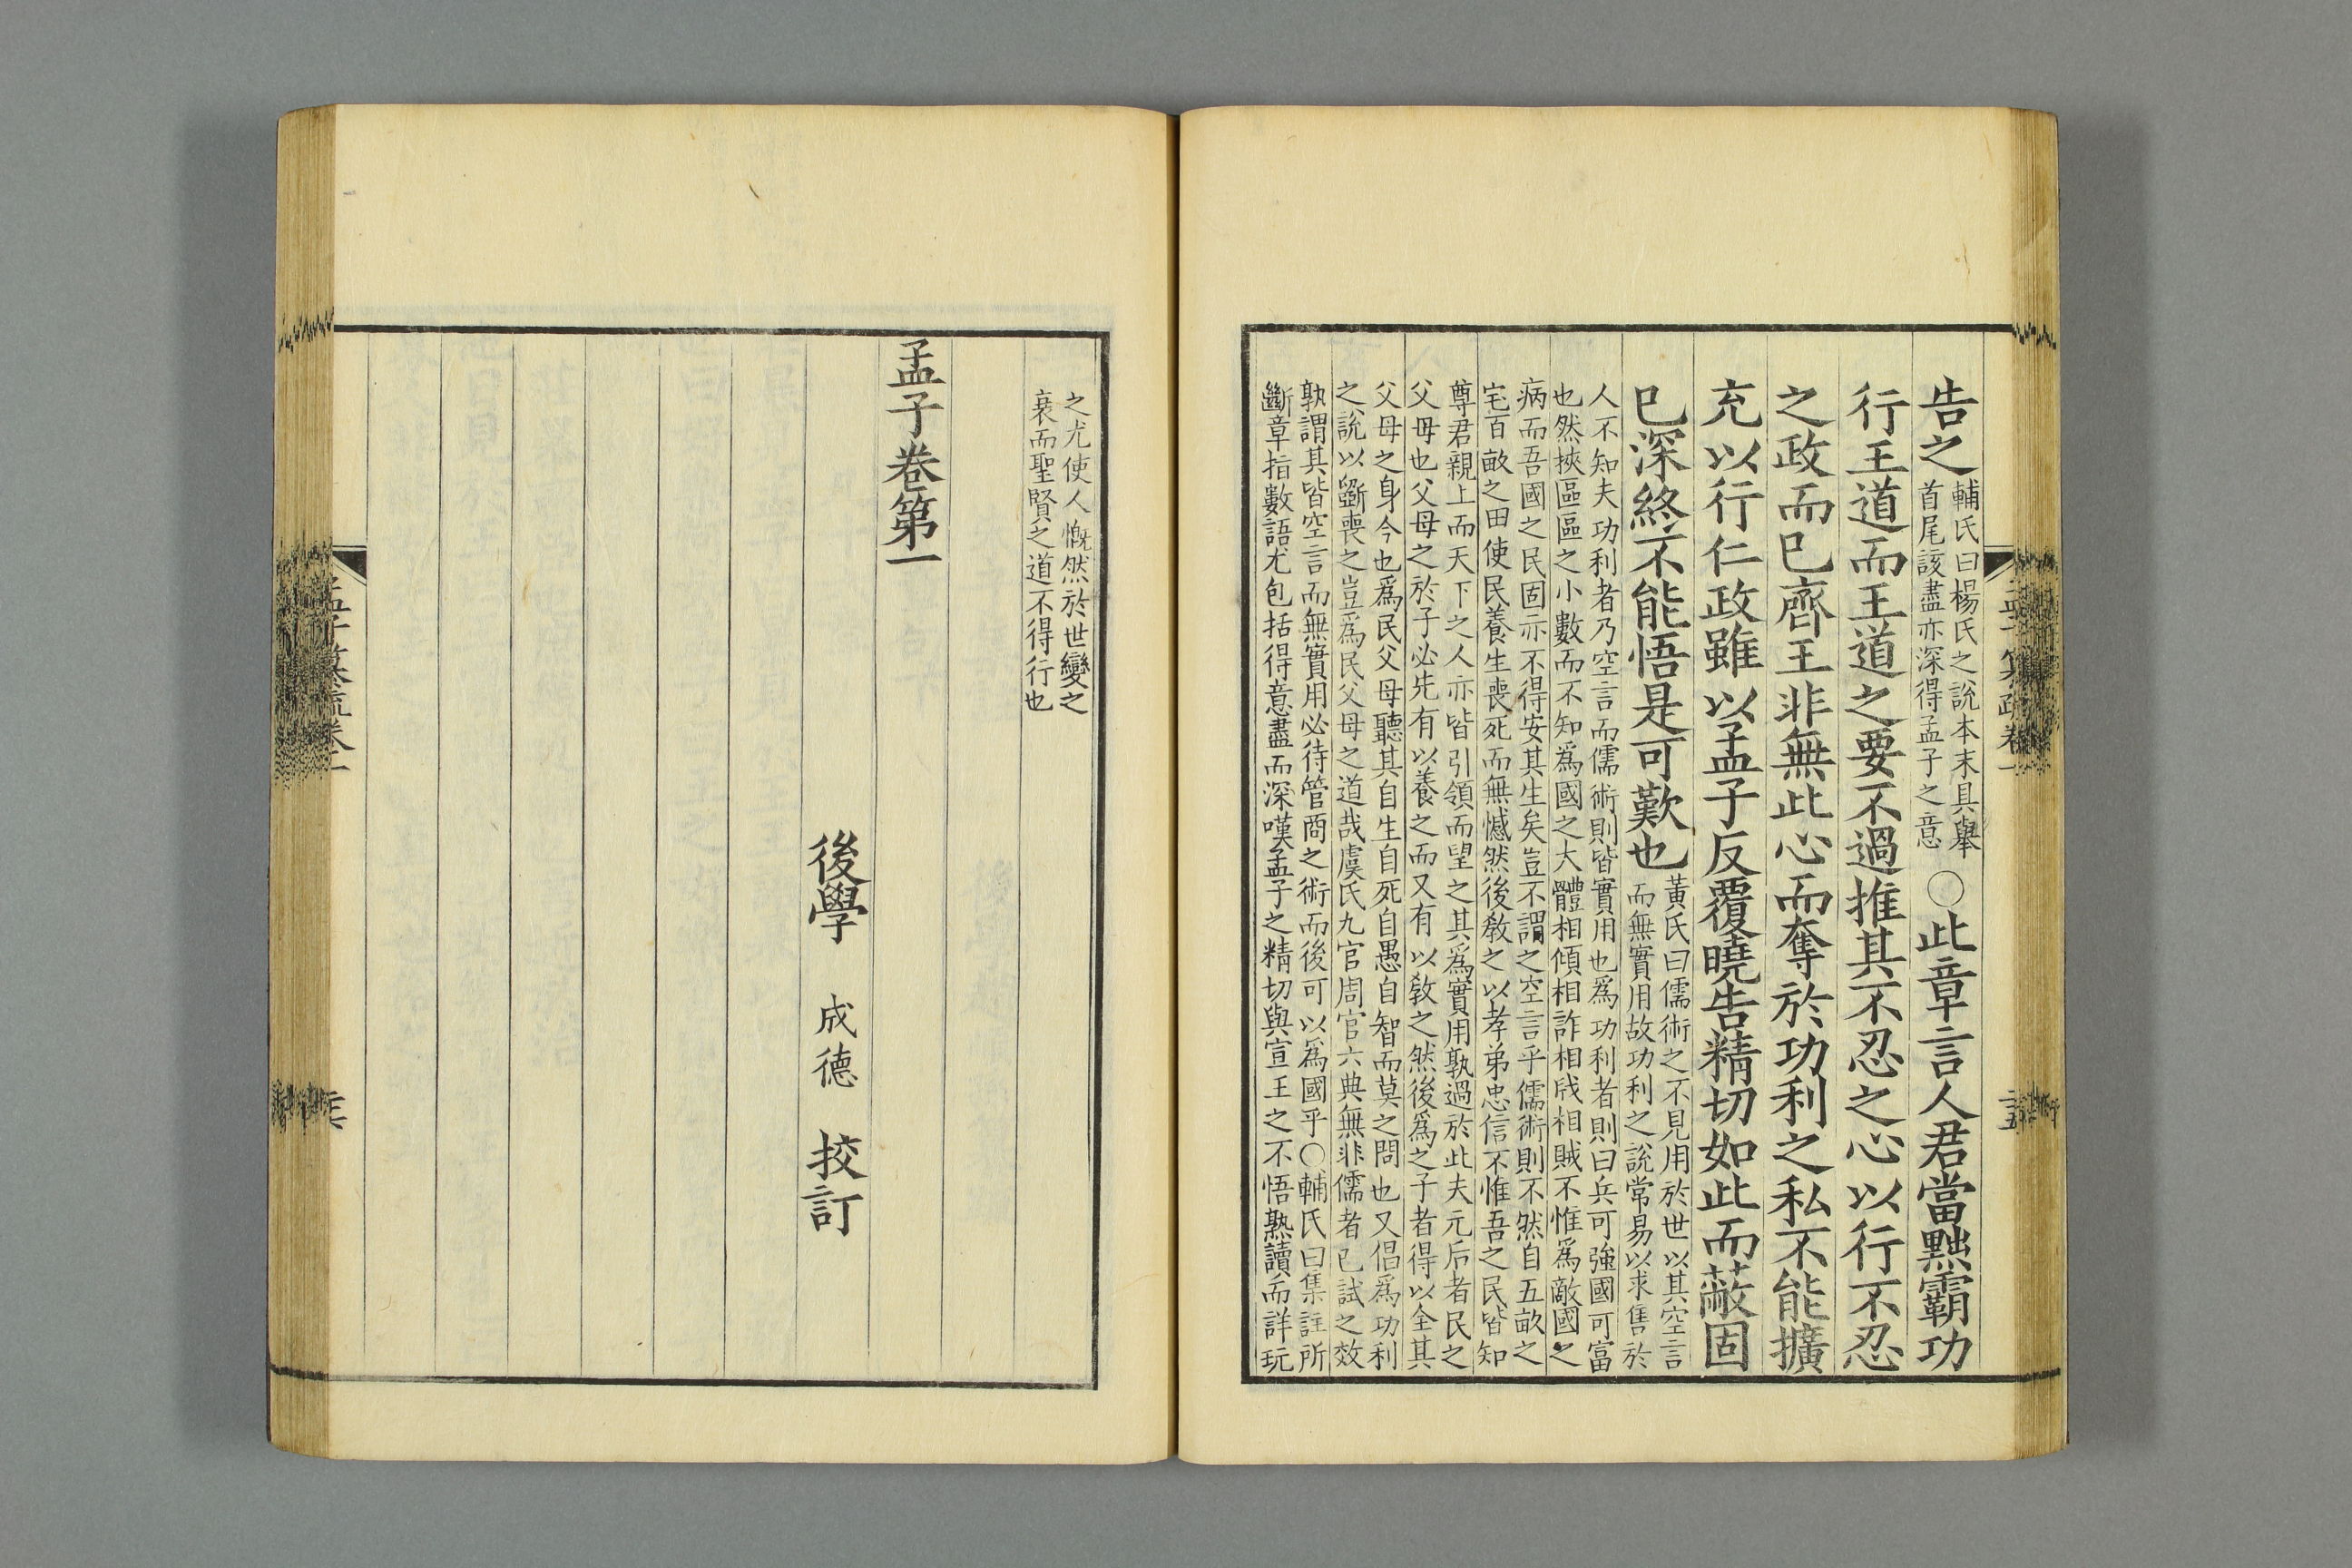 告之輔氏曰楊氏之說本末具舉
首尾該盡亦深得孟子之意〇此章言人君當黜霸功
行王道而王道之要不過推其不忍之心以行不忍
之政而已齊王非無此心而奪於功利之私不能擴
充以行仁政雖以孟子反覆曉告精切如此而蔽固
已深終不能悟是可歎也黃氏曰儒術之不見用於世以其空言
而無實用故功利之說常易以求售於
人不知夫功利者乃空言而儒術則皆實用也爲功利者則曰兵可強國可富
也然挾區區之小數而不知爲國之大體相傾相詐相戕相賊不惟爲敵國之
病而吾國之民固亦不得安其生矣豈不謂之空言乎儒術則不然自五畝之
宅百畝之田使民養生喪死而無憾然後敎之以孝弟忠信不惟吾之民皆知
尊君親上而天下之人亦皆引領而望之其爲實用孰過於此夫元后者民之
父母也父母之於子必先有以養之而又有以敎之然後爲之子者得以全其
父母之身今也爲民父母聽其自生自死自愚自智而莫之問也又倡爲功利
之說以斲喪之豈爲民父母之道哉虞氏九官周官六典無非儒者已試之效
孰謂其皆空言而無實用必待管商之術而後可以爲國乎〇輔氏曰集註所
斷章指數語尤包括得意盡而深嘆孟子之精切與宣王之不悟熟讀而詳玩
孟子纂疏卷一
二五
之尤使人慨然於世變之
衰而聖賢之道不得行也
孟子卷第一
後學 成德 挍訂
孟子纂疏卷一